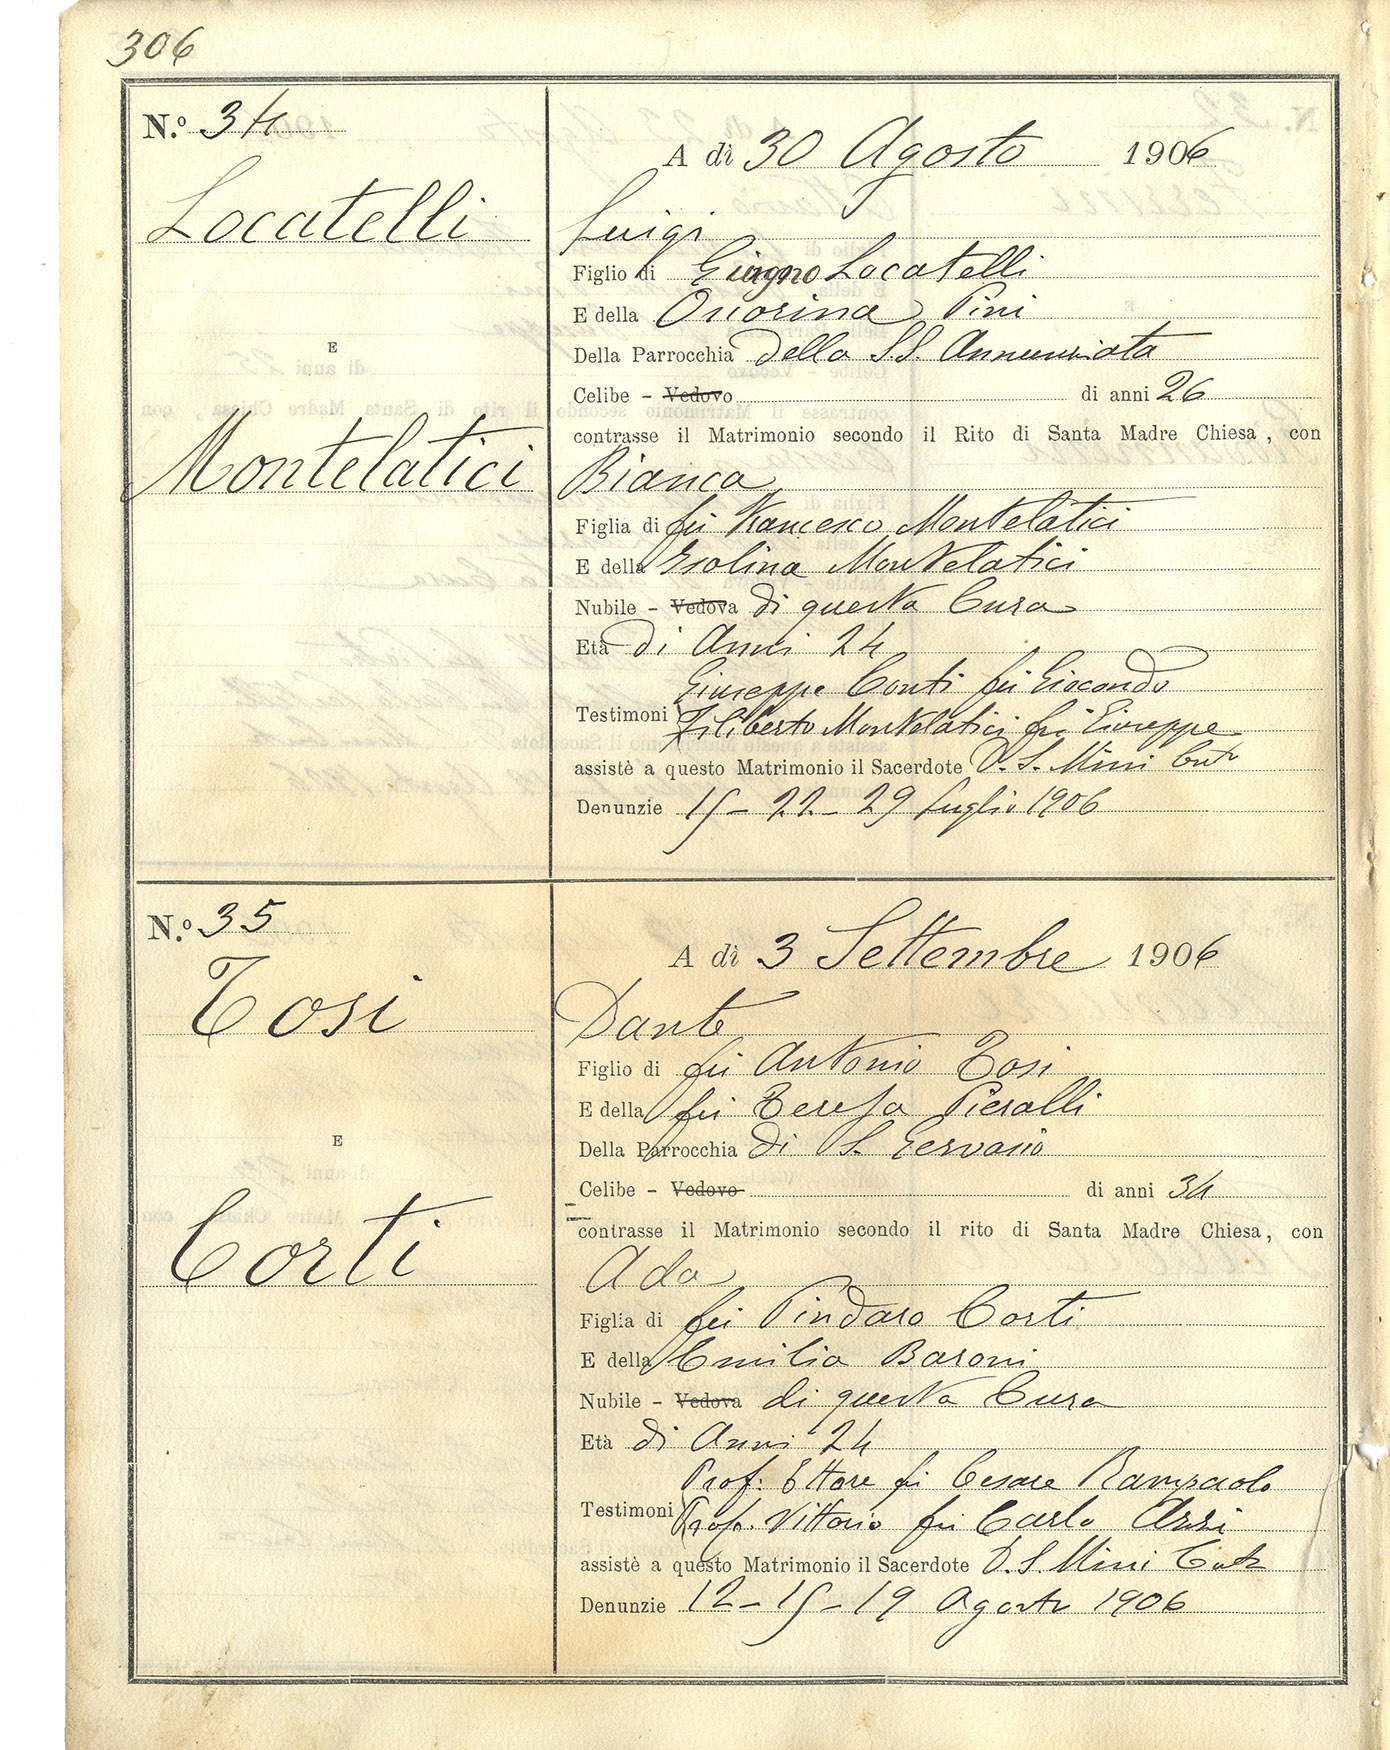 306
N.º 34
A dì 30 Agosto 1906
Locatelli
Luigi
Figlio di Giugno Locatelli
E della Onorina Pini
E
Della Parrocchia della SS. Annunziata
Celibe - Vedovo di anni 26
contrasse il Matrimonio secondo il Rito di Santa Madre Chiesa, con
Montelatici
Bianca
Figlia di fu Francesco Montelatici
E della Isolina Montelatici
Nubile - Vedova di questa Cura
Età di Anni 24
Giuseppe Conti fu Giocondo
Testimoni Filiberto Montelatici fu Giuseppe
assistè a questo Matrimonio il Sacerdote D. S. Mini
Denunzie 15 - 22 - 29 Luglio 1906
N.º 35
A dì 3 Settembre 1906
Tosi
Dante
Figlio di fu Antonio Tosi
E della fu Teresa Pieralli
E
Della Parrocchia di S. Gervasio
Celibe - Vedovo di anni 34
contrasse il Matrimonio secondo il rito di Santa Madre Chiesa, con
Corti
Ada
Figlia di fu Pindaro Corti
E della Emilia Baroni
Nubile - Vedova di questa Cura
Età di Anni 24
Prof. Ettore fu Cesare
Testimoni Prof. Vittorio fu Carlo
assistè a questo Matrimonio il Sacerdote D. S. Mini
Denunzie 12 - 15 - 19 Agosto 1906